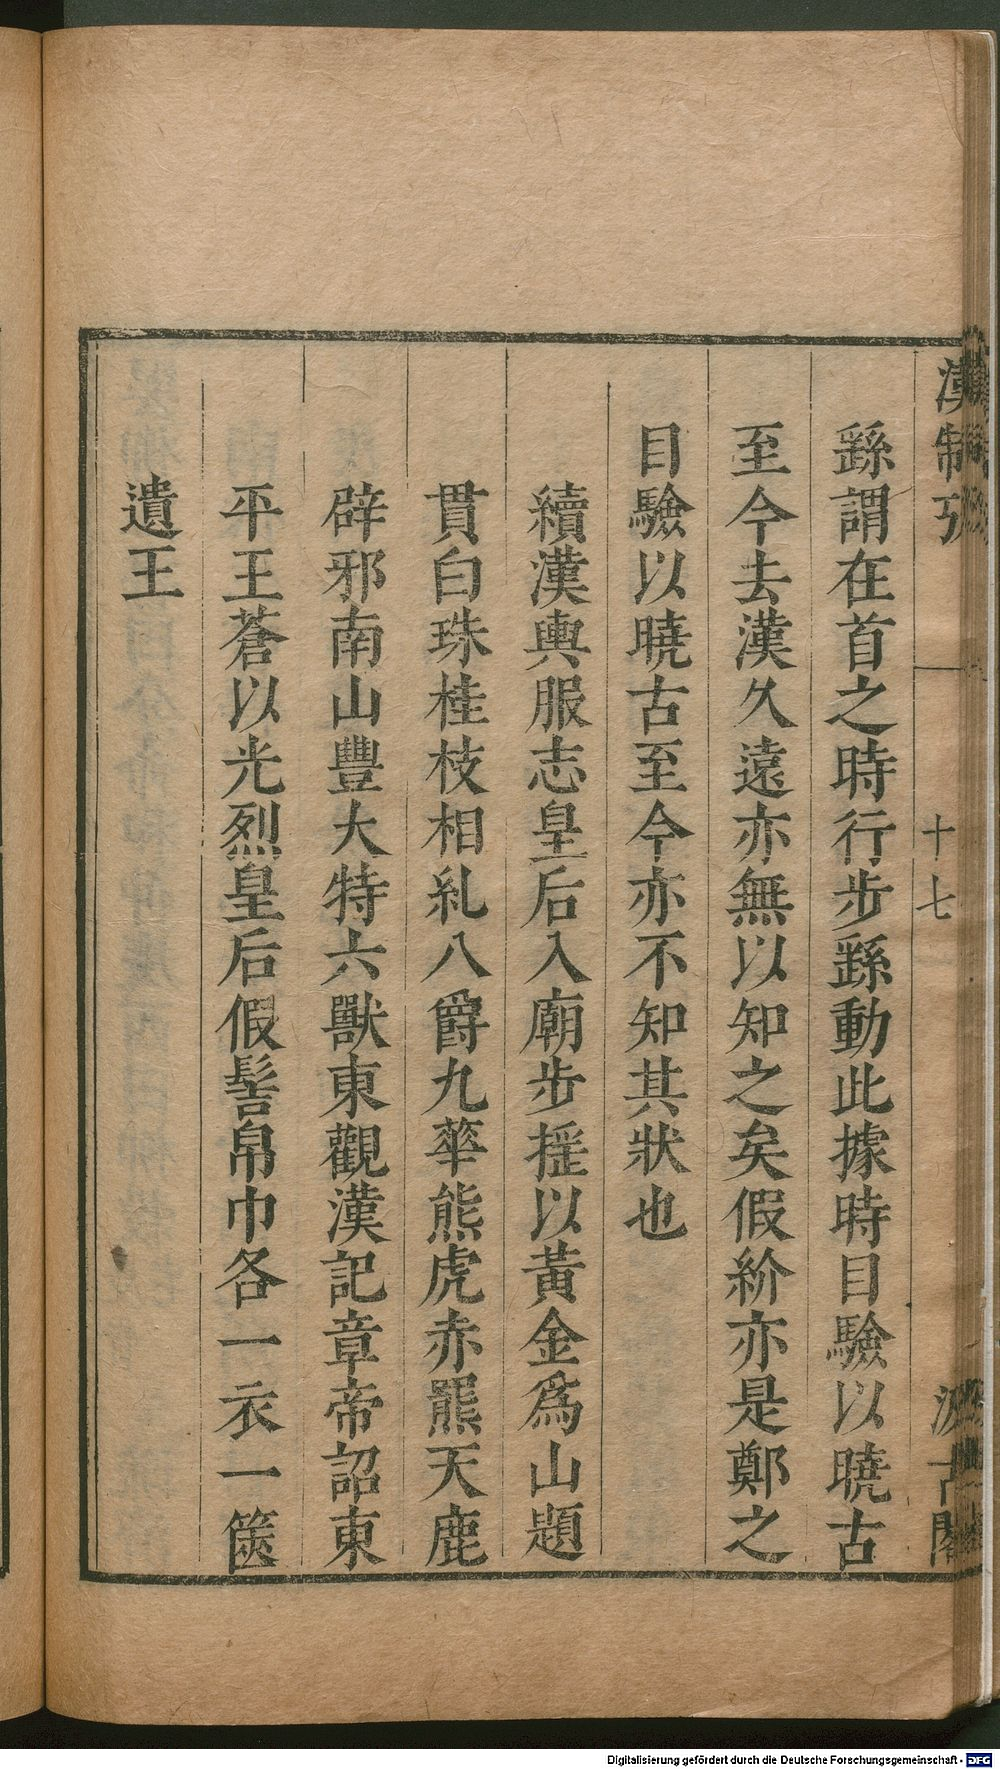 漢制攷
十七
汲古閣
繇謂在首之時行步繇動此據時目驗以曉古
至今去漢久遠亦無以知之矣假紒亦是鄭之
目驗以曉古至今亦不知其狀也
續漢輿服志皇后入廟步摇以黃金爲山題
貫白珠桂枝相糺八爵九華熊虎赤羆天鹿
辟邪南山豐大特六獸東觀漢記章帝詔東
平王蒼以光烈皇后假髻帛巾各一衣一篋
遺王
Digitalisierung gefördert durch die Deutsche Forschungsgemeinschaft - DFG